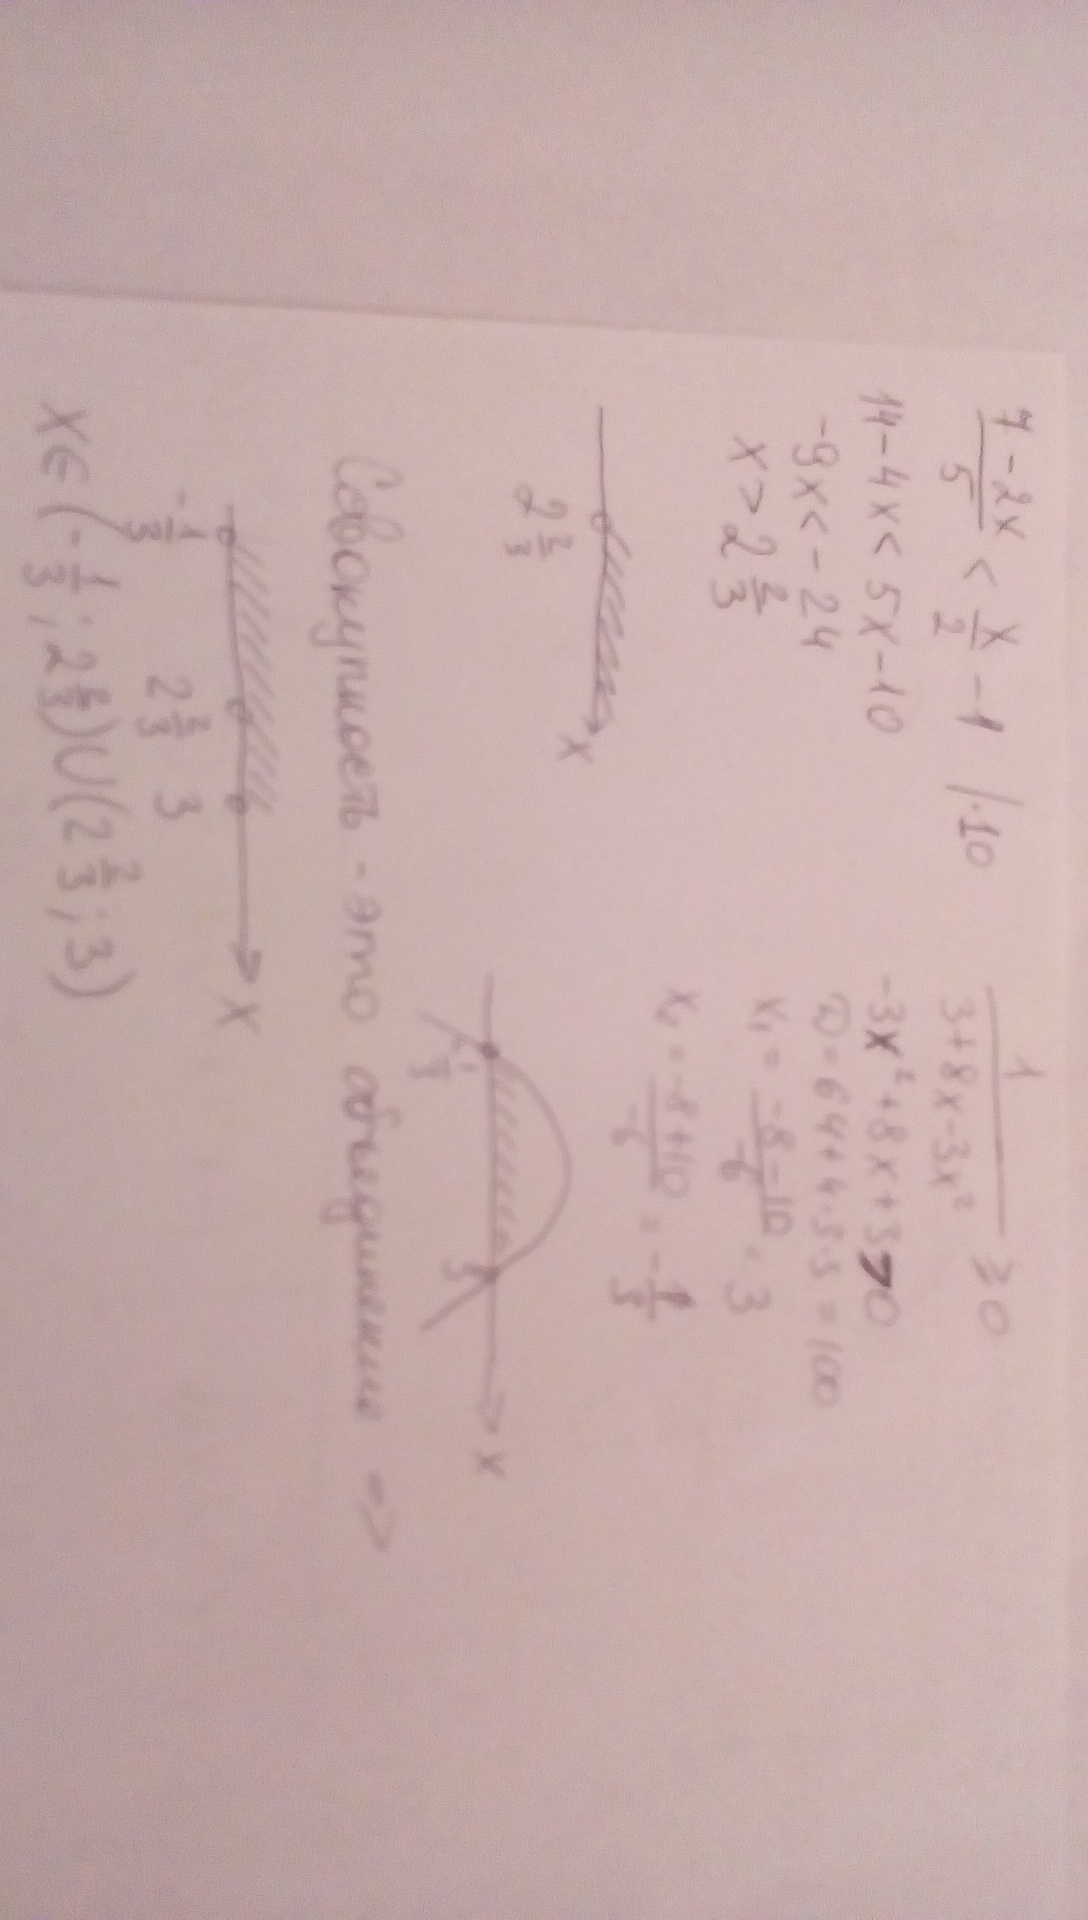 7-2x/5 < x/2 - 1 /·10
14-4x < 5x-10
-9x < -24
x > 2 2/3
x
2 2/3
1/3+8x-3x² ≥ 0
-3x²+8x+3>0
D=64+4·3·3=100
x₁ = -8-10/-6 = 3
x₂ = -8+10/-6 = -1/3
x
-1/3 3
Совокупность - это объединение =>
x
-1/3 2 2/3 3
x∈(-1/3; 2 2/3)∪(2 2/3; 3)